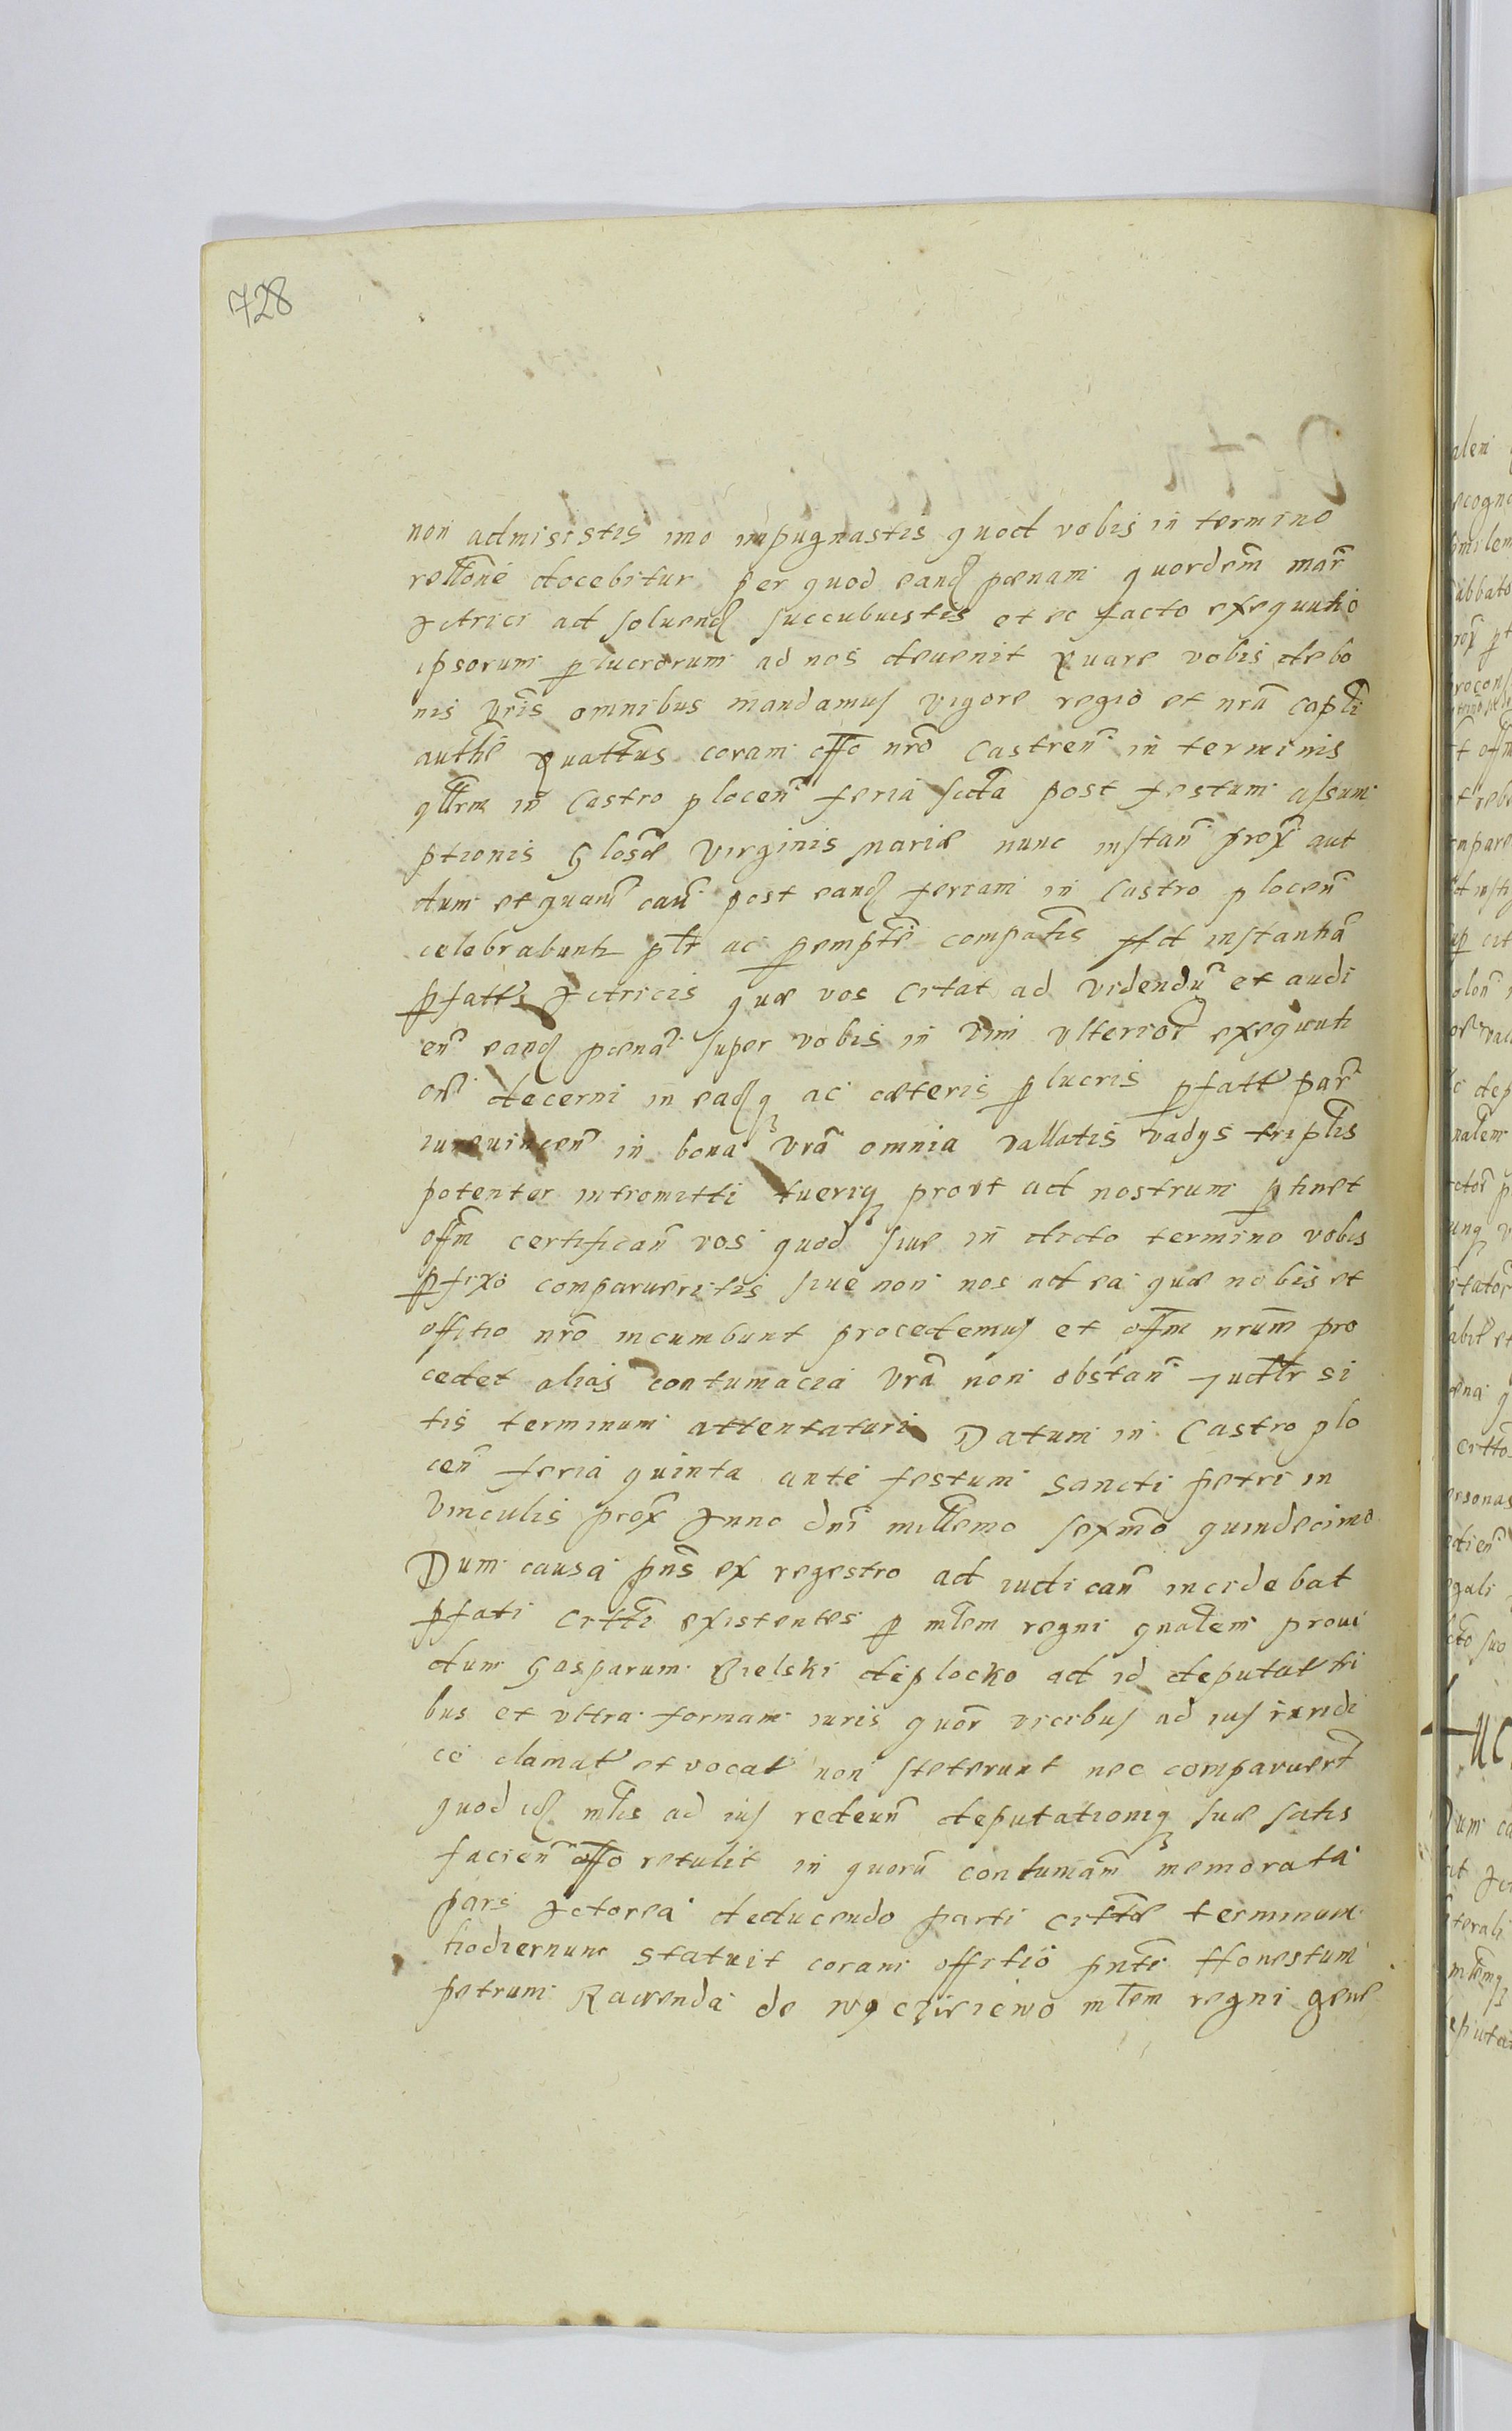 728
non admisistis imo impugnastis quod vobis in termino
rellōne docebitur per quod eand pœnam quordem̄ mar̄
Actrici ad soluend succubuistis et eo facto exequutio
ipsorum plucrorum ad nos devenit Quare vobis de bo
nis vr̄is omnibus mandamus vigore regio et nr̄a cap̄li
authē quattus coram offo nr̄o Castren̄ in terminis
qllrm in Castro plocen̄ feria scta post festum assum
ptionis Glosæ Virginis Mariæ nunc instan̄ prox̄ aut
dum et quan̄ cau̅ post eand feriam in Castro plocen̄
celebrabunt plr ac pempte compatis Ad instantia
pfattæ Actricis quæ vos citat ad videndu̅ et audi
en̄ eand pœna super vobis in vim vlterior̄ exequuti
on̄ decerni in eadq ac cæteris plucris pfatt par̄
iure vincen̄ in bona vr̄a omnia vallatis vadys triplis
potenter intromitti tueriq provt ad nostrum ptinet
off̄m certifican̄ vos quod siue in dicto termino vobis
pfixo comparueritis siue non nos ad ea quæ nobis et
offitio nr̄o incumbunt procedemus et off̄m nrum̄ pro
cedet alias contumacia vr̄a non obstan̄ Judlr si
tis terminum attentaturi Datum in Castro plo
cen̄ feria quinta ante festum Sancti Petri in
Vinculis prox̄ Anno dn̄i millemo sexmo quindecimo
Dum causa pn̄s ex regestro ad iudican̄ incidebat
pfati citti existentes p mlem regni gnalem proui
dum Gasparum Bielski de plocko ad id deputat tri
bus et vltra formam iuris quor̄ vicibus ad ius iuridi
ce clamat et vocat non steterunt nec comparuer̄t
quod id mlis ad ius redeun̄ deputationiq suæ satis
facien̄ offo retulit in quoru̅ contumam̄ memorata
pars Actorea deducendo parti cittæ terminum
hodiernum statuit coram offitio pn̄ti Honestum
petrum Rawenda de Wyczinieuo mlem regni gene